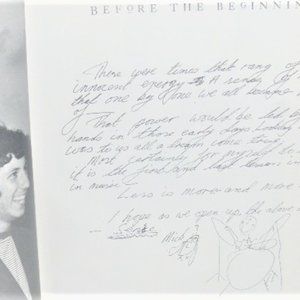 BEFORE THE BEGINNIN
There were times that rang of
innocent energy A sense of
that one by one we all became
of
That power would be led by
hands in those early days Looking
was to us all a dream come true
Most certainly for myself
it is the first and last lesson
in music
Less is more and more
I hope as we open up the above
Mick